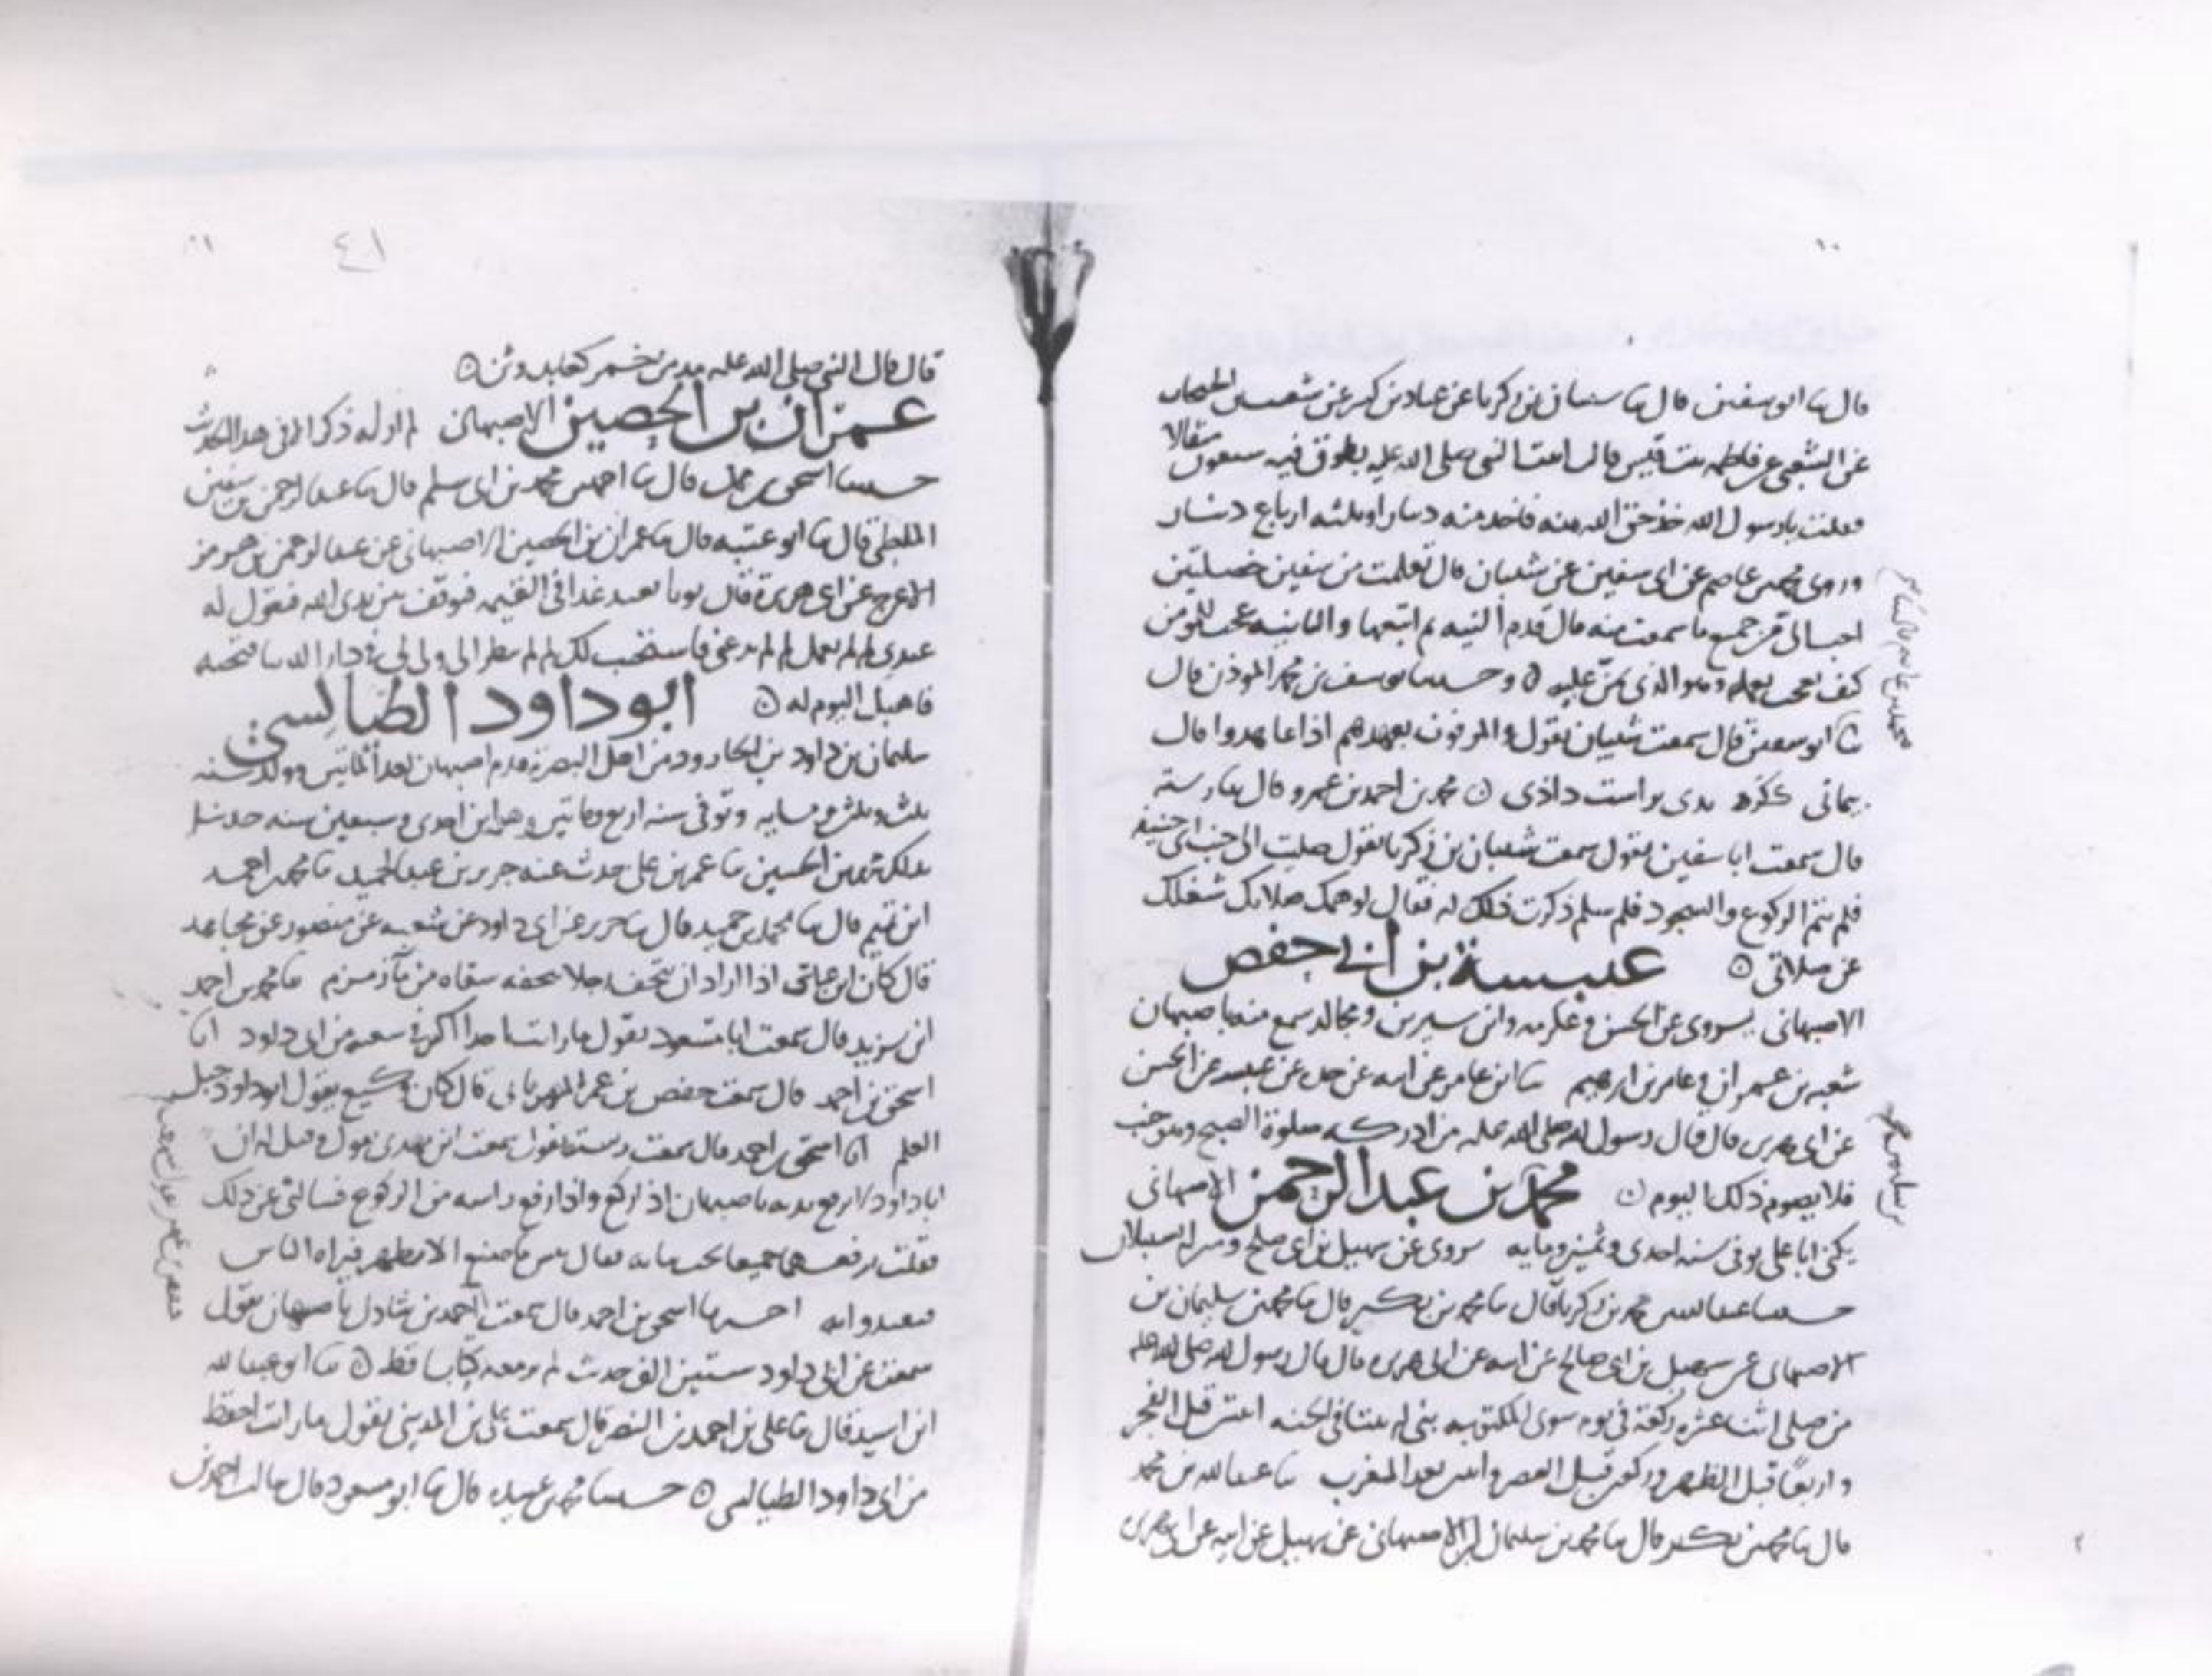 قال ثنا ابو سفين قال ثنا شعبان بن زكريا عن عباد بن كثير عن شعيب بن الحبحاب
عن الشعبي عن فاطمه بنت قيس قالت اتيت النبي صلى الله عليه بطوق فيه سبعون مثقالا
فقلت يا رسول الله خذ حق الله منه فاخذ منه دينارا وثلثه ارباع دينار
وروى محمد بن عاصم عن ابي سفين عن شعبان قال تعلمت من سفين خصلتين
احب الي من جميع ما سمعت منه قال قدم النيه ثم اتبعها والثانيه عجب للمومن
كيف يعجب بعمله وهو الذي من عليه ٥ وحدثنا يوسف بن محمد الموذن قال
ثنا ابو سفين قال سمعت شعبان يقول والموفون بعهدهم اذا عاهدوا قال
بدى براست داذى ٥ محمد بن احمد بن عمرو قال ثنا رسته
قال سمعت ابا سفين يقول سمعت شعبان بن زكريا يقول صليت الى جنب ابي حنيفه
فلم يتم الركوع والسجود فلما سلم ذكرت ذلك له فقال لو همك صلاتك شغلك
عن صلاتي ٥ عنبسة بن ابي حفص
الاصبهاني يروي عن الحسن وعكرمه وابن سيرين ومجالد سمع منه باصبهان
شعبه بن عمران وعامر بن ابرهيم ثنا ابن عامر عن ابيه عن جده عن عنبسه عن الحسن
عن ابي هريره قال قال رسول الله صلى الله عليه من ادركه صلوة الصبح وهو جنب
فلا يصوم ذلك اليوم ٥ محمد بن عبد الرحمن الاصبهاني
يكنى ابا علي توفي سنه احدى وثمنين ومايه يروي عن سهيل بن ابي صلح
حدثنا محمد بن زكريا قال ثنا محمد بن بكير قال ثنا محمد بن سليمان بن
الاصبهاني عن سهيل بن ابي صالح عن ابيه عن ابي هريره قال قال رسول الله صلى الله عليه
من صلى اثنتا عشره ركعة في يوم سوى المكتوبه بني له بيتا في الجنه اثنتين قبل الفجر
واربعا قبل الظهر وركعتين قبل العصر واثنتين بعد المغرب ثنا عبد الله بن محمد
قال ثنا محمد بن بكير قال ثنا محمد بن سليمان بن الاصبهاني عن سهيل عن ابيه عن ابي هريره
١٠
محمد بن عاصم
٤١
١١
قال قال النبي صلى الله عليه مدمن خمر كعابد وثن ٥
عمران بن الحصين الاصبهاني لم ار له ذكرا الا في هذا الحديث
حدثنا اسحق بن قال ثنا احمد بن محمد بن ابي سلم قال ثنا عبد الرحمن بن سفين
الملطي قال ثنا ابو عتبه قال ثنا عمران بن الحصين الاصبهاني عن عبد الرحمن بن هرمز
الاعرج عن ابي هريرة قال يوتا بعبد غدا في القيمه فيوقف بين يدي الله فيقول له
عبدي الم تعمل الم تدعني فاستجب لك الم تنظر الى ولي لي في دار الدنيا فتحبه
فاهبك اليوم له ٥ ابو داود الطيالسي
سليمان بن داود بن الجارود من اهل البصرة قدم اصبهان بعد المايتين وولد سنه
ثلث وثلثين ومايه وتوفي سنه اربع ومايتين وهو ابن احدى وسبعين سنه حدثنا
بذلك محمد بن الحسين ثنا عمر بن علي حدث عنه جرير بن عبد الحميد ثنا محمد بن احمد
ابن تميم قال ثنا محمد بن حميد قال ثنا جرير عن ابي داود عن شعبه عن منصور عن مجاهد
قال كان ابن عباس اذا اراد ان يتحف رجلا بتحفه سقاه من ما زمزم ثنا محمد بن احمد
ابن يزيد قال سمعت ابا مسعود يقول ما رايت احدا اكثر في شعبه من ابي داود انا
اسحق بن احمد قال سمعت حفص بن عمر المهرباني قال كان وكيع يقول ابو داود جبل
العلم انا اسحق بن احمد قال سمعت رسته يقول سمعت ابن مهدي يقول وقيل له ان
ابا داود لا يرفع يديه باصبهان اذا ركع واذا رفع راسه من الركوع فسالني عن ذلك
فقلت يرفعهما جميعا تحت ثيابه فقال بئس ما صنع الا يظهر فيراه الناس
فيقتدوا به اخبرنا اسحق بن احمد قال سمعت احمد بن شاذل باصبهان يقول
سمعت عن ابي داود ستين الف حديث لم ار معه كتابا قط ٥ ثنا ابو عبد الله
ابن اسيد قال ثنا علي بن احمد بن النضر قال سمعت علي بن المديني يقول ما رايت احفظ
من ابي داود الطيالسي ٥ حدثنا محمد بن عبيده قال ثنا ابو مسعود قال سالت احمد بن